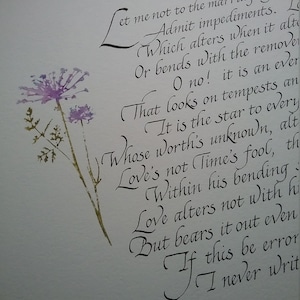 Let me not to the marriag
Admit impediments. L
Which alters when it alte
Or bends with the remover
O no! it is an ever
That looks on tempests an
It is the star to every
Whose worth's unknown, alt
Love's not Time's fool, th
Within his bending s
Love alters not with hi
But bears it out even
If this be error
I never writ